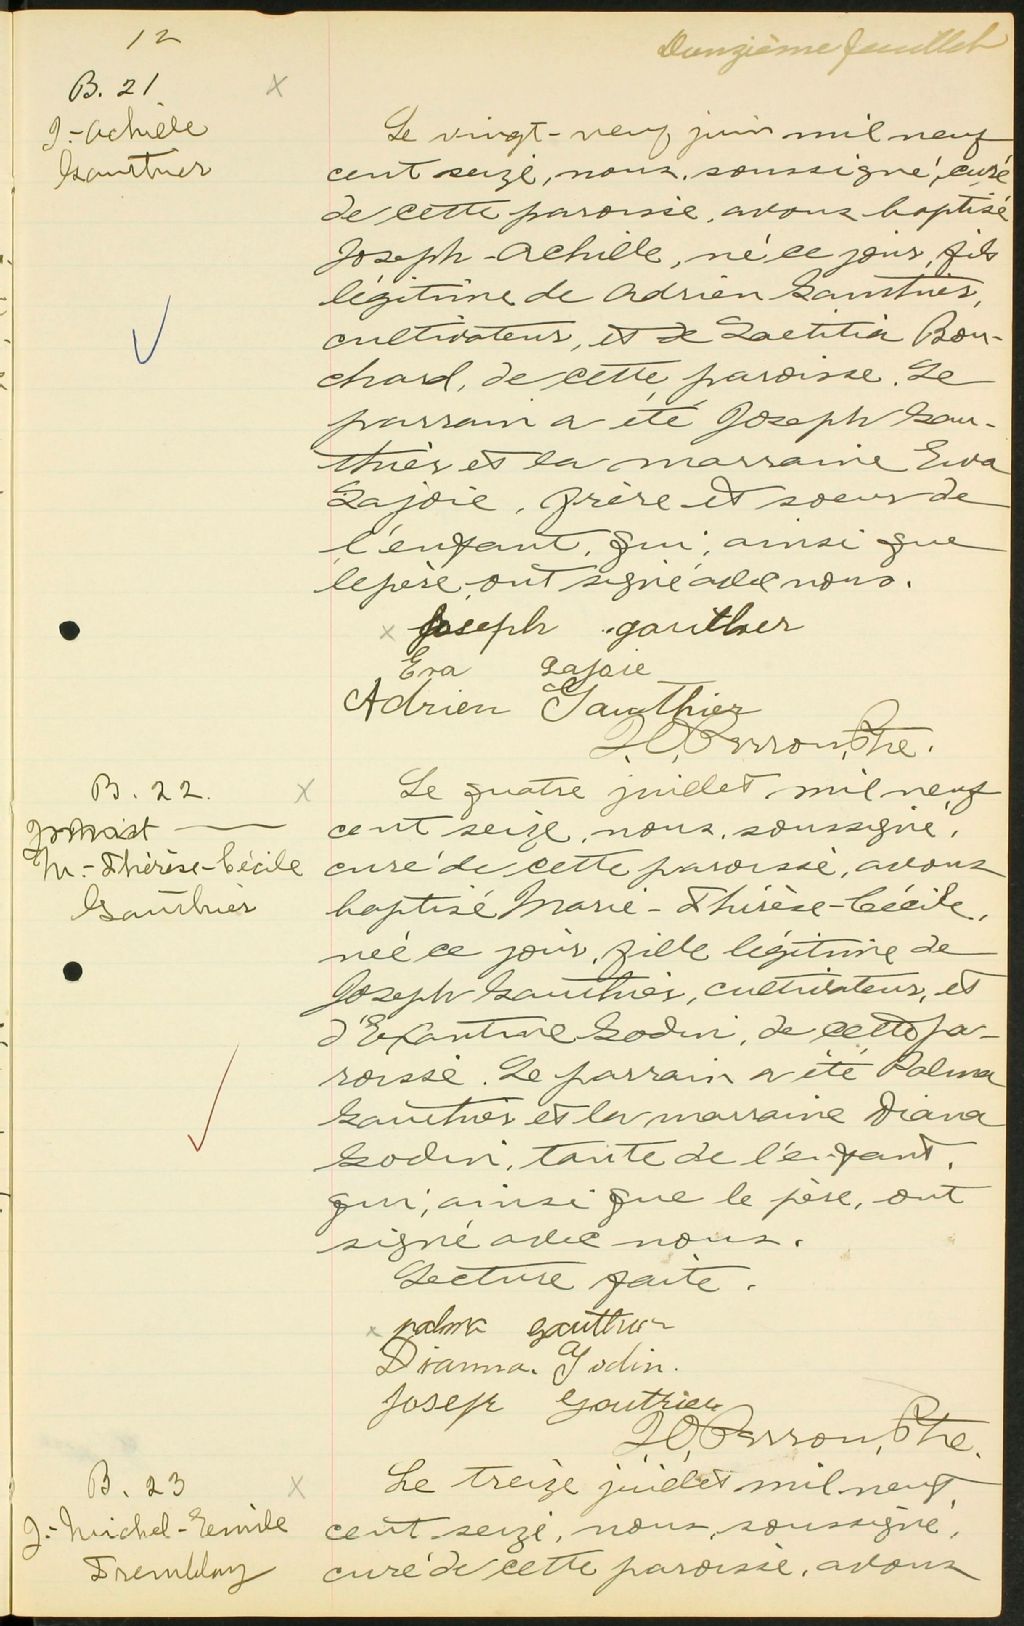 12
Douzième feuillet
B. 21
J.-Achille
Gauthier
Le vingt-neuf juin mil neuf
cent seize, nous, soussigné, curé
de cette paroisse, avons baptisé
Joseph-Achille, né ce jour, fils
légitime de Adrien Gauthier,
cultivateur, et de Laetitia Bou-
chard, de cette paroisse. Le
parrain a été Joseph Gau-
thier et la marraine Eva
Lajoie, frère et soeur de
l'enfant, qui, ainsi que
le père, ont signé avec nous.
Joseph gauthier
Eva Lajoie
Adrien Gauthier
J.O. Perron, Ptre.
B. 22.
M.-Thérèse-Cécile
Gauthier
Le quatre juillet mil neuf
cent seize, nous, soussigné,
curé de cette paroisse, avons
baptisé Marie-Thérèse-Cécile,
née ce jour, fille légitime de
Joseph Gauthier, cultivateur, et
d'Exantine Godin, de cette pa-
roisse. Le parrain a été Palma
Gauthier et la marraine Diana
Godin, tante de l'enfant,
qui, ainsi que le père, ont
signé avec nous.
Lecture faite.
palma gauthier
Dianna. Godin.
Joseph Gauthier
J.O. Perron, Ptre.
B. 23
J.-Michel-Emile
Tremblay
Le treize juillet mil neuf
cent seize, nous, soussigné,
curé de cette paroisse, avons